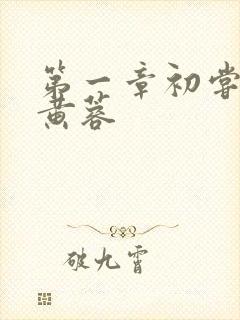 第一章初尝
黄蓉
破九霄